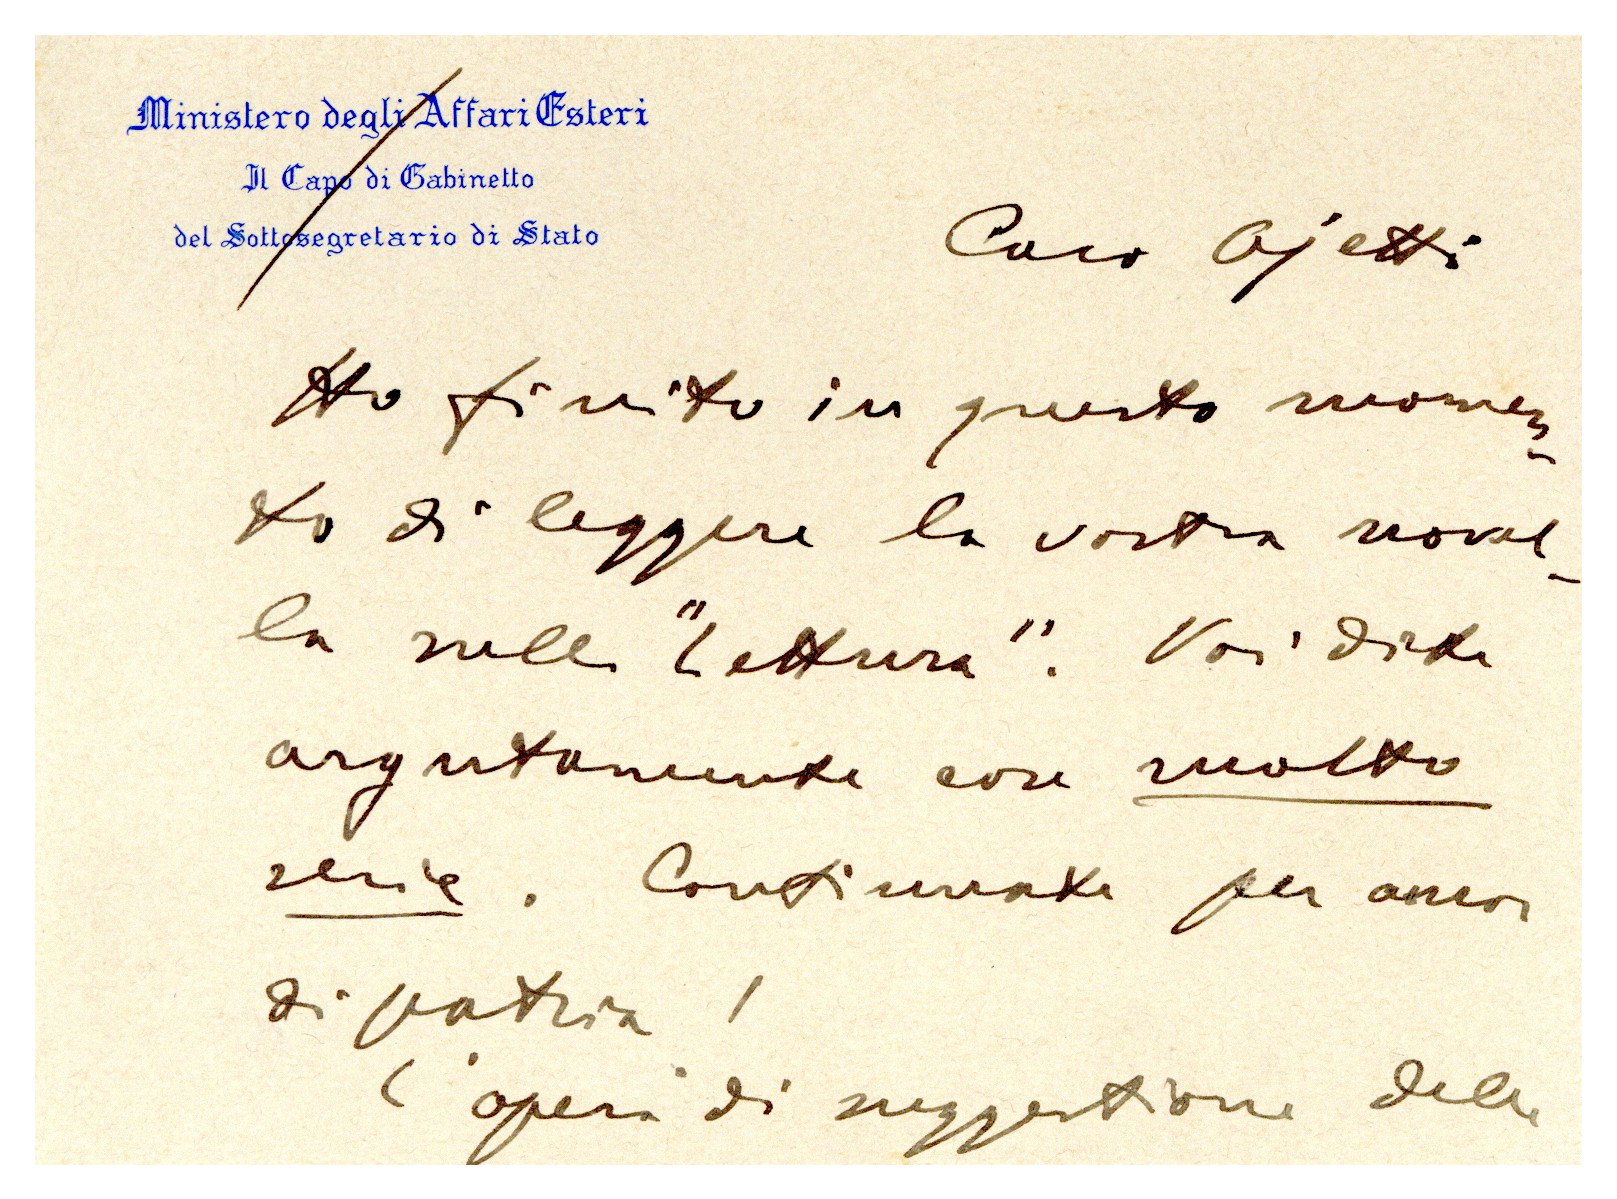 Ministero degli Affari Esteri
Il Capo di Gabinetto
del Sottosegretario di Stato
Caro Ojetti
Ho finito in questo momen-
to di leggere la vostra novel-
la nella "Lettura". Voi dite
argutamente cose molto
serie. Continuate per amor
di patria!
L'opera di suggestione della